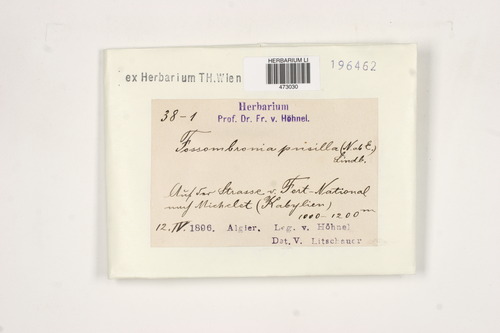 ex Herbarium TH.Wien
HERBARIUM LI
473030
196462
38-1
Herbarium
Prof. Dr. Fr. v. Höhnel.
Fossombronia pusilla (N ab E)
Lindb.
Auf der Strasse v. Fort-National
nach Michelet (Kabylien)
1000-1200 m
12. IV. 1896. Algier. Leg. v. Höhnel
Det. V. Litschauer